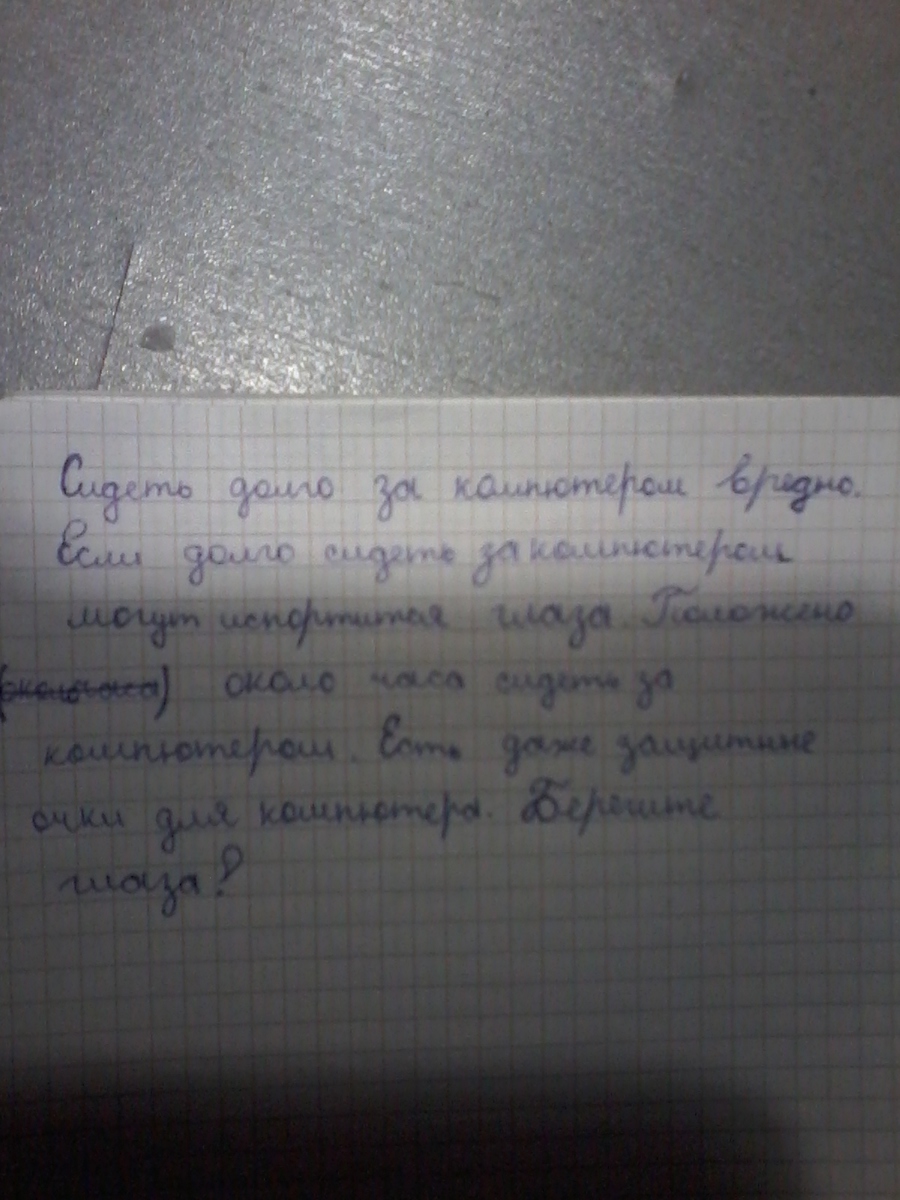 Сидеть долго за компютером вредно.
Если долго сидеть за компютером
могут испортится глаза. Положено
(околочаса) около часа сидеть за
компютером. Есть даже защитные
очки для компютера. Берегите
глаза!